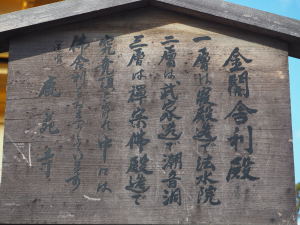 金閣舎利殿
一層は寝殿造で法水院
二層は武家造で潮音洞
三層は禅宗佛殿造で
究竟頂と申し中には
佛舎利がおまつりしてあります
鹿苑寺